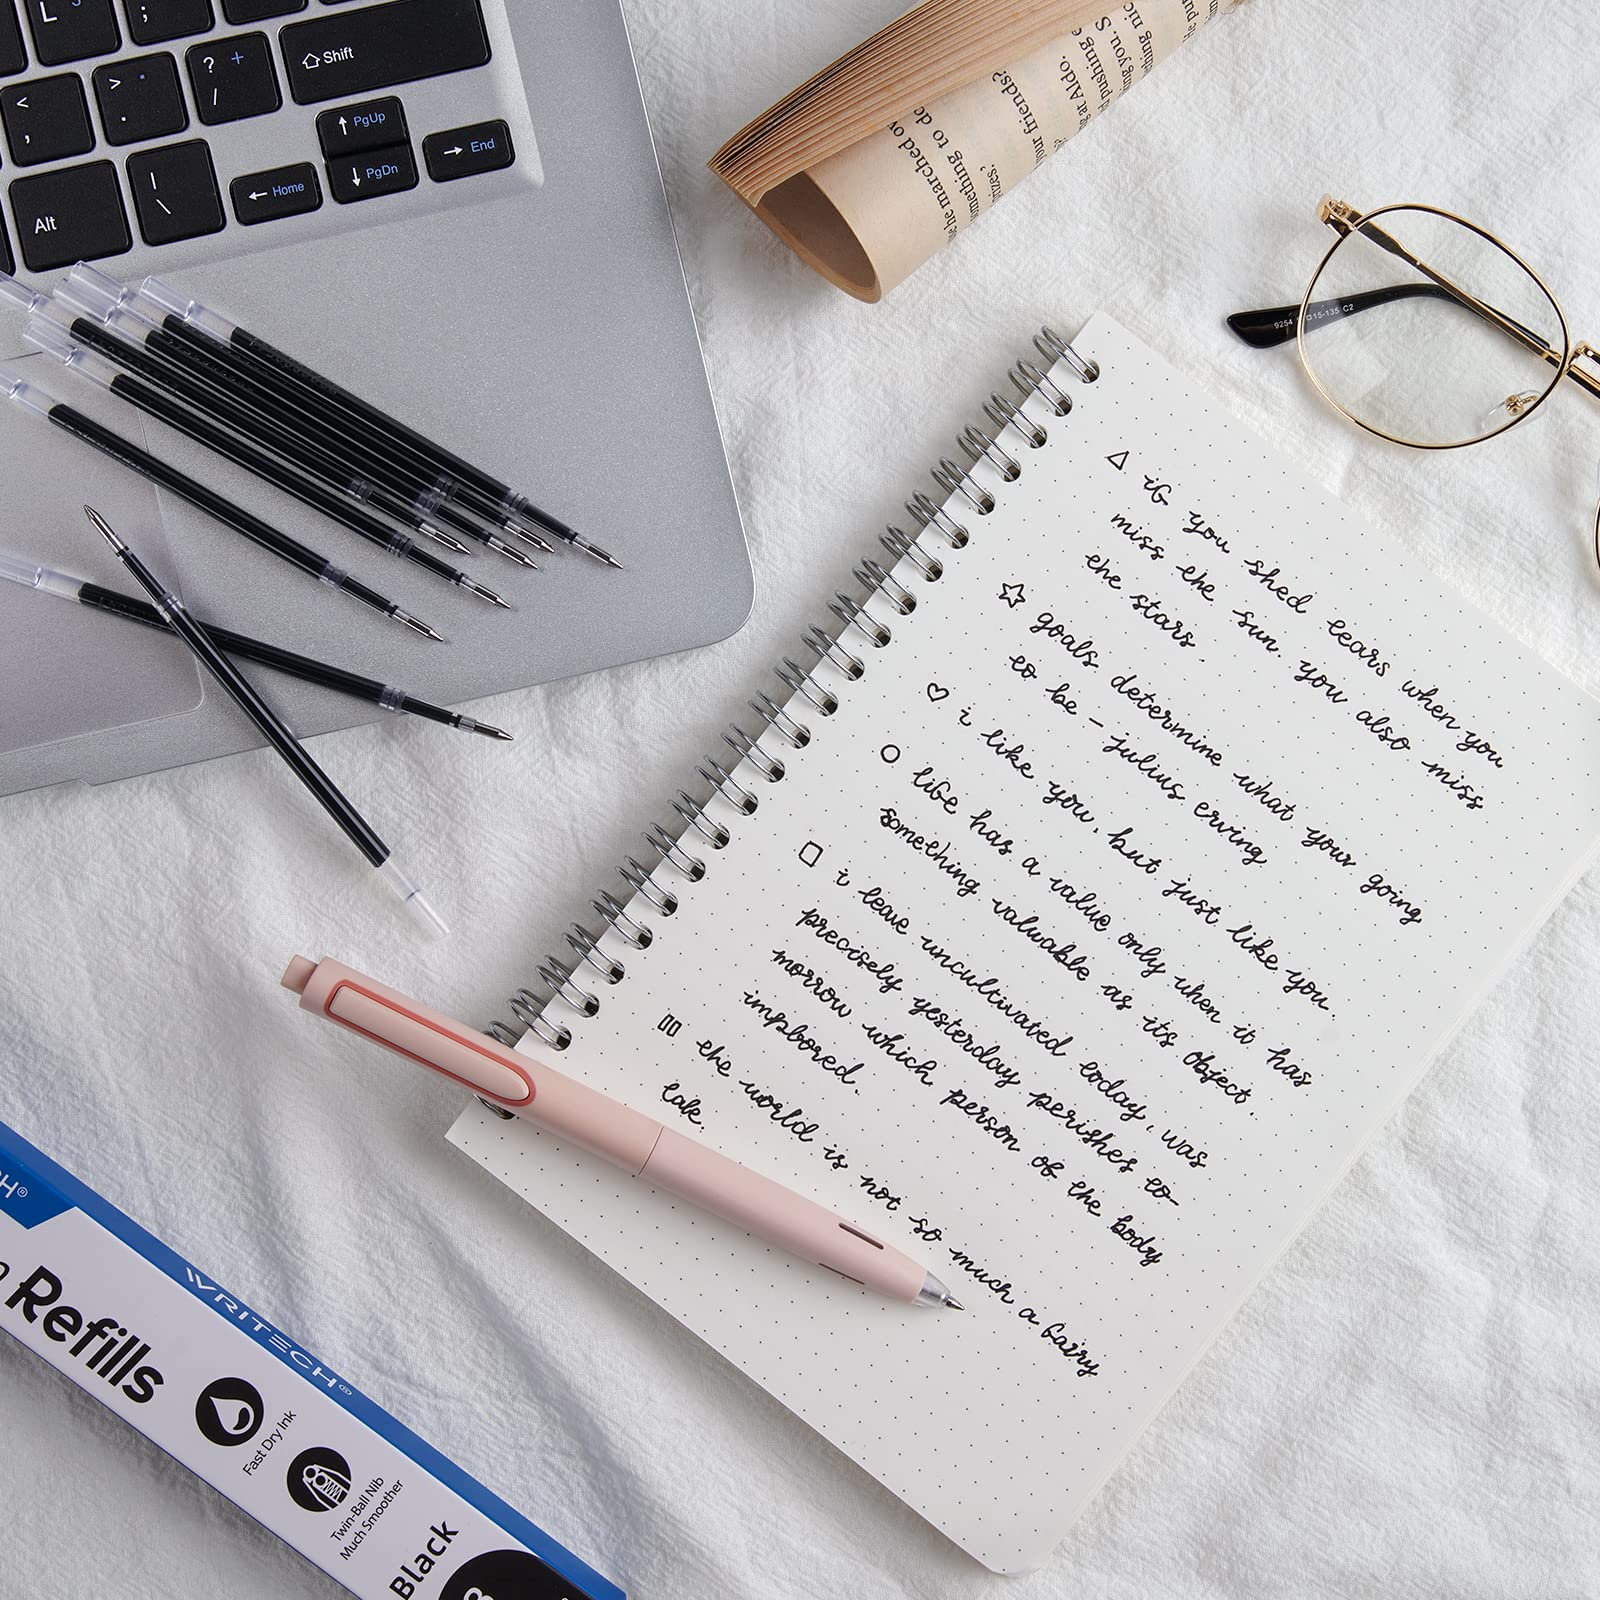 L
3
;
:
<
,
>
.
?
+
/
Shift
Alt
|
\
Home
PgUp
PgDn
End
he marched
something to do
your friends?
at Aldo.
pushing
ing you. S
9254
15-135 C2
if you shed tears when you
miss the sun. you also miss
the stars.
goals determine what your going
to be - julius erving
i like you, but just like you.
life has a value only when it has
something valuable as its object.
i leave uncultivated today, was
precisely yesterday perishes to-
morrow which person of the body
implored.
the world is not so much a fairy
tale.
WRITECH®
Refills
Fast Dry Ink
Twin-Ball Nib
Much Smoother
Black